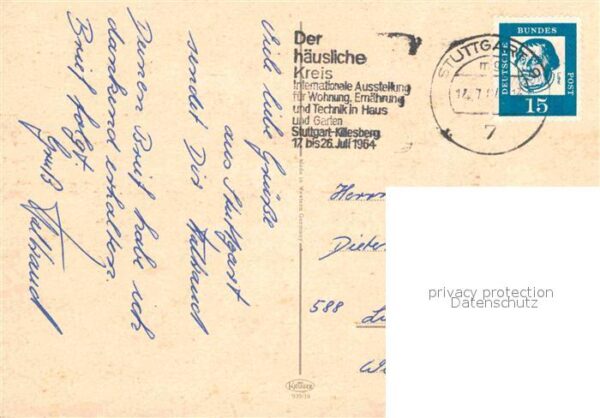 Viele liebe Grüße
aus Stuttgart
sendet Dir
Deinen Brief habe ich
dankend erhalten.
Brief folgt.
Gruß
Der
häusliche
Kreis
Internationale Ausstellung
für Wohnung, Ernährung
und Technik in Haus
und Garten
Stuttgart-Killesberg
17. bis 26. Juli 1964
STUTTGART
14.7.
7
DEUTSCHE
BUNDES
POST
15
Made in Western Germany
Herrn
Dieter
588
privacy protection
Datenschutz
Krüger